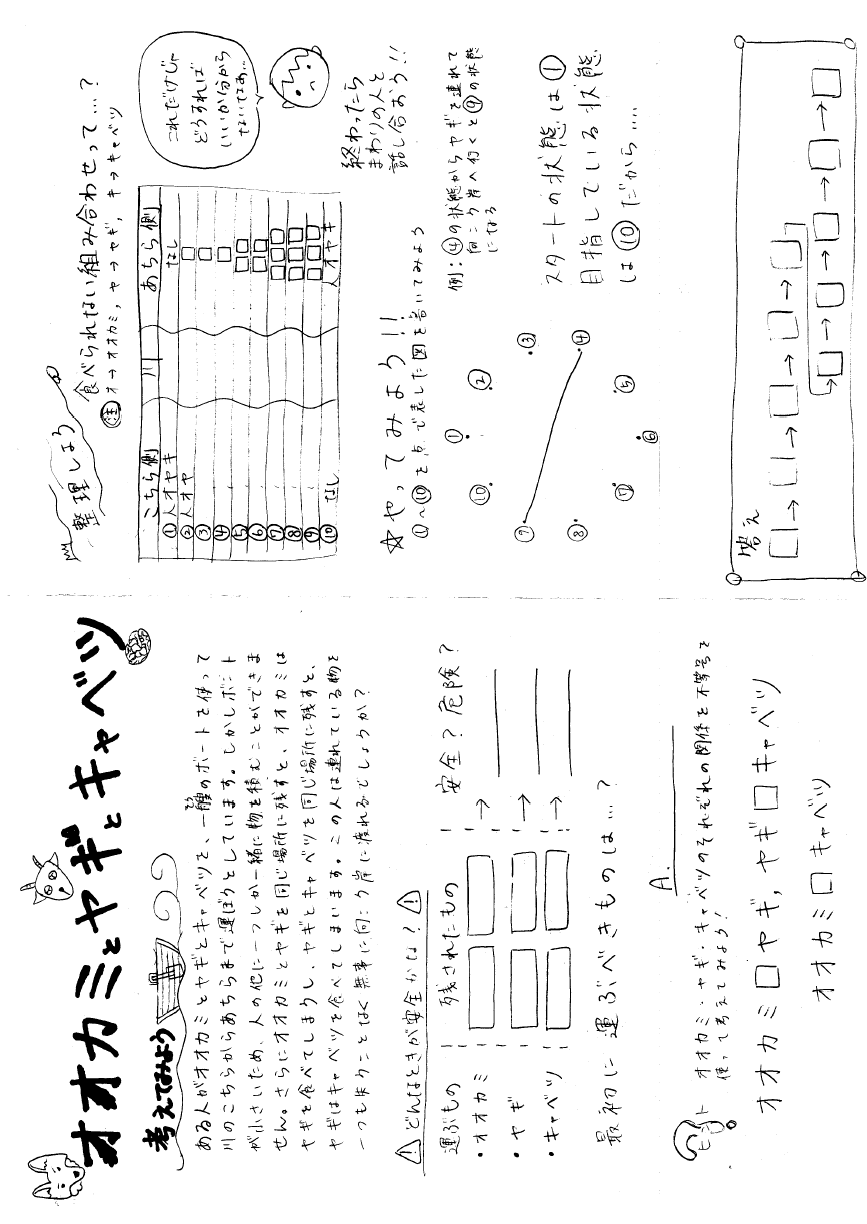 オオカミとヤギとキャベツ
考えてみよう
ある人がオオカミとヤギとキャベツを、一艘のボートを使って
そう
川のこちらからあちらまで運ぼうとしています。しかしボート
が小さいため、人の他に一つしか一緒に物を積むことができま
せん。さらにオオカミとヤギを同じ場所に残すと、オオカミは
ヤギを食べてしまうし、ヤギとキャベツを同じ場所に残すと、
ヤギはキャベツを食べてしまいます。この人は連れている物を
一つも失うことなく無事に向こう岸に渡れるでしょうか？
⚠どんなときが安全かな？⚠
運ぶもの 残されたもの 安全？危険？
・オオカミ □ □ →
・ヤギ □ □ →
・キャベツ □ □ →
最初に運ぶべきものは…？
A.
ヒント オオカミ・ヤギ・キャベツのそれぞれの関係を不等号を
使って考えてみよう！
オオカミ□ヤギ, ヤギ□キャベツ
オオカミ□キャベツ
整理しよう
食べられない組み合わせって…？
㊟ オ→オオカミ, ヤ→ヤギ, キ→キャベツ
こちら側 川 あちら側
① 人オヤキ なし
② 人オヤ □
③ □
④ □
⑤ □□
⑥ □□
⑦ □□□
⑧ □□□
⑨ □□□
⑩ なし 人オヤキ
これだけじゃ
どうすれば
いいか分から
ないなあ…
終わったら
まわりの人と
話し合おう!!
☆やってみよう!!
①〜⑩を点で表した図を書いてみよう
例：④の状態からヤギを連れて
向こう岸へ行くと⑨の状態
になる
①
②
③
④
⑤
⑥
⑦
⑧
⑨
⑩
スタートの状態は①
目指している状態
は⑩だから....
答え
□→□→□→□→□
→□→□→□→□→□